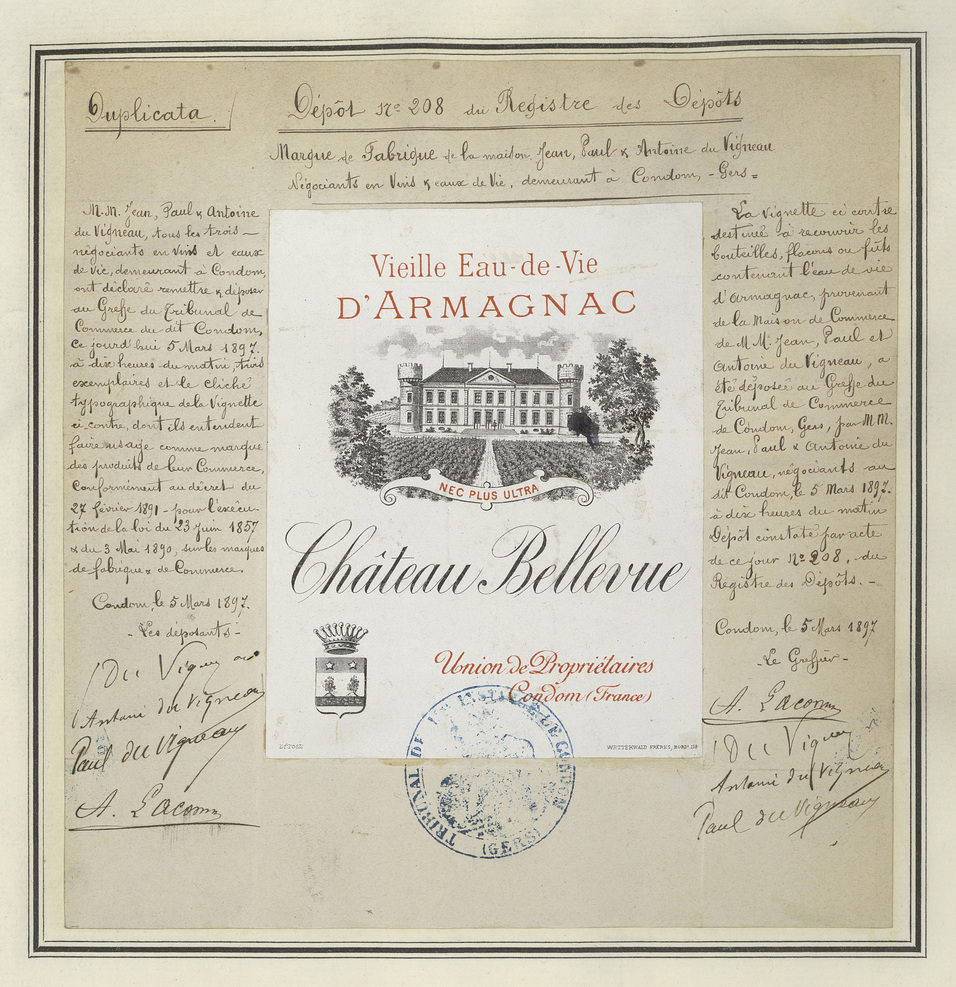 Duplicata.
Dépôt No 208 du Registre des Dépôts
Marque de Fabrique de la maison Jean, Paul & Antoine du Vigneau
Négociants en Vins & eaux de Vie, demeurant à Condom, - Gers =
M.M. Jean, Paul & Antoine
du Vigneau, tous les trois -
négociants en vins et eaux
de vie, demeurant à Condom,
ont déclaré remettre & déposer
au Greffe du Tribunal de
Commerce du dit Condom,
ce jourd'hui 5 Mars 1897.
à dix heures du matin, trois
exemplaires et le cliché
typographique de la Vignette
ci-contre, dont ils entendent
faire usage comme marque
des produits de leur Commerce,
Conformément au décret du
27 février 1891 - pour l'exécu-
tion de la loi du 23 Juin 1857
& du 3 Mai 1890, sur les marques
de fabrique & de Commerce.
Condom, le 5 Mars 1897.
- Les déposants -
Du Vigneau
Antoine du Vigneau
Paul du Vigneau
A. Lacomme
Vieille Eau-de-Vie
D'ARMAGNAC
NEC PLUS ULTRA
Château Bellevue
Union de Propriétaires
Condom (France)
DÉPOSÉ
WETTERWALD FRÈRES, BORDX
TRIBUNAL DE CONDOM
(GERS)
La Vignette ci contre
destinée à recouvrir les
bouteilles, flacons ou fûts
contenant l'eau de vie
d'armagnac, provenant
de la Maison de Commerce
de M.M. Jean, Paul et
Antoine du Vigneau, a
été déposée au Greffe du
Tribunal de Commerce
de Condom, Gers, par M.M.
Jean, Paul & Antoine du
Vigneau, négociants au
dit Condom, le 5 Mars 1897.
à dix heures du matin
Dépôt constaté par acte
de ce jour No 208, du
Registre des Dépôts. -
Condom, le 5 Mars 1897
- Le Greffier -
A. Lacomme
Du Vigneau
Antoine du Vigneau
Paul du Vigneau